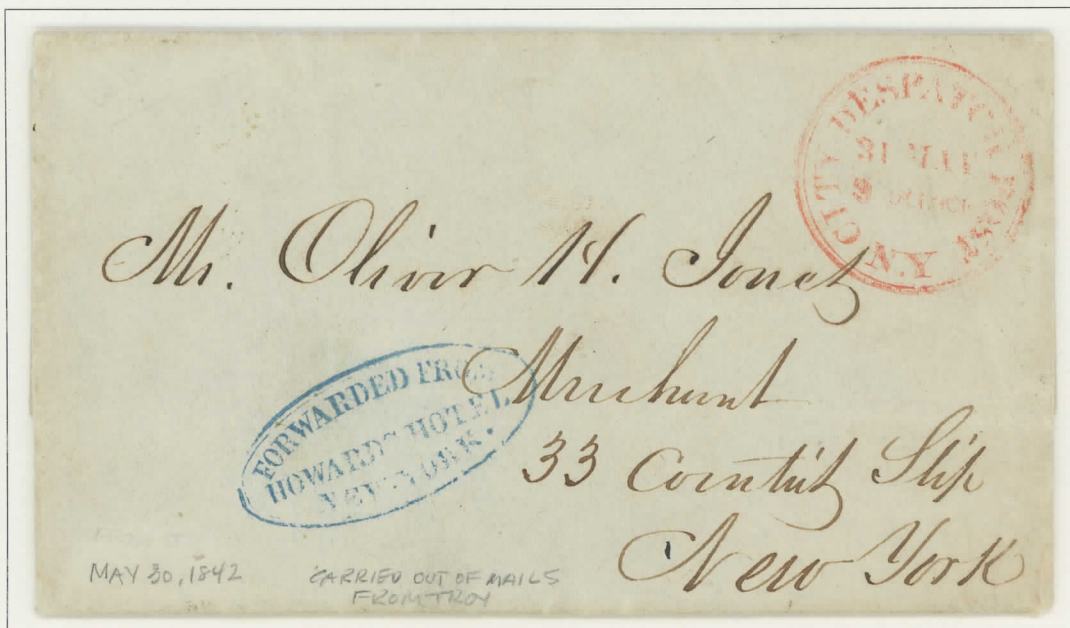 CITY DESPATCH POST
31 MAY
9 O'CLOCK
N.Y
Mr. Oliver H. Jones
Merchant
33 Coentiit Slip
New York
FORWARDED FROM
HOWARDS HOTEL
NEW-YORK.
MAY 30, 1842
CARRIED OUT OF MAILS
FROM TROY